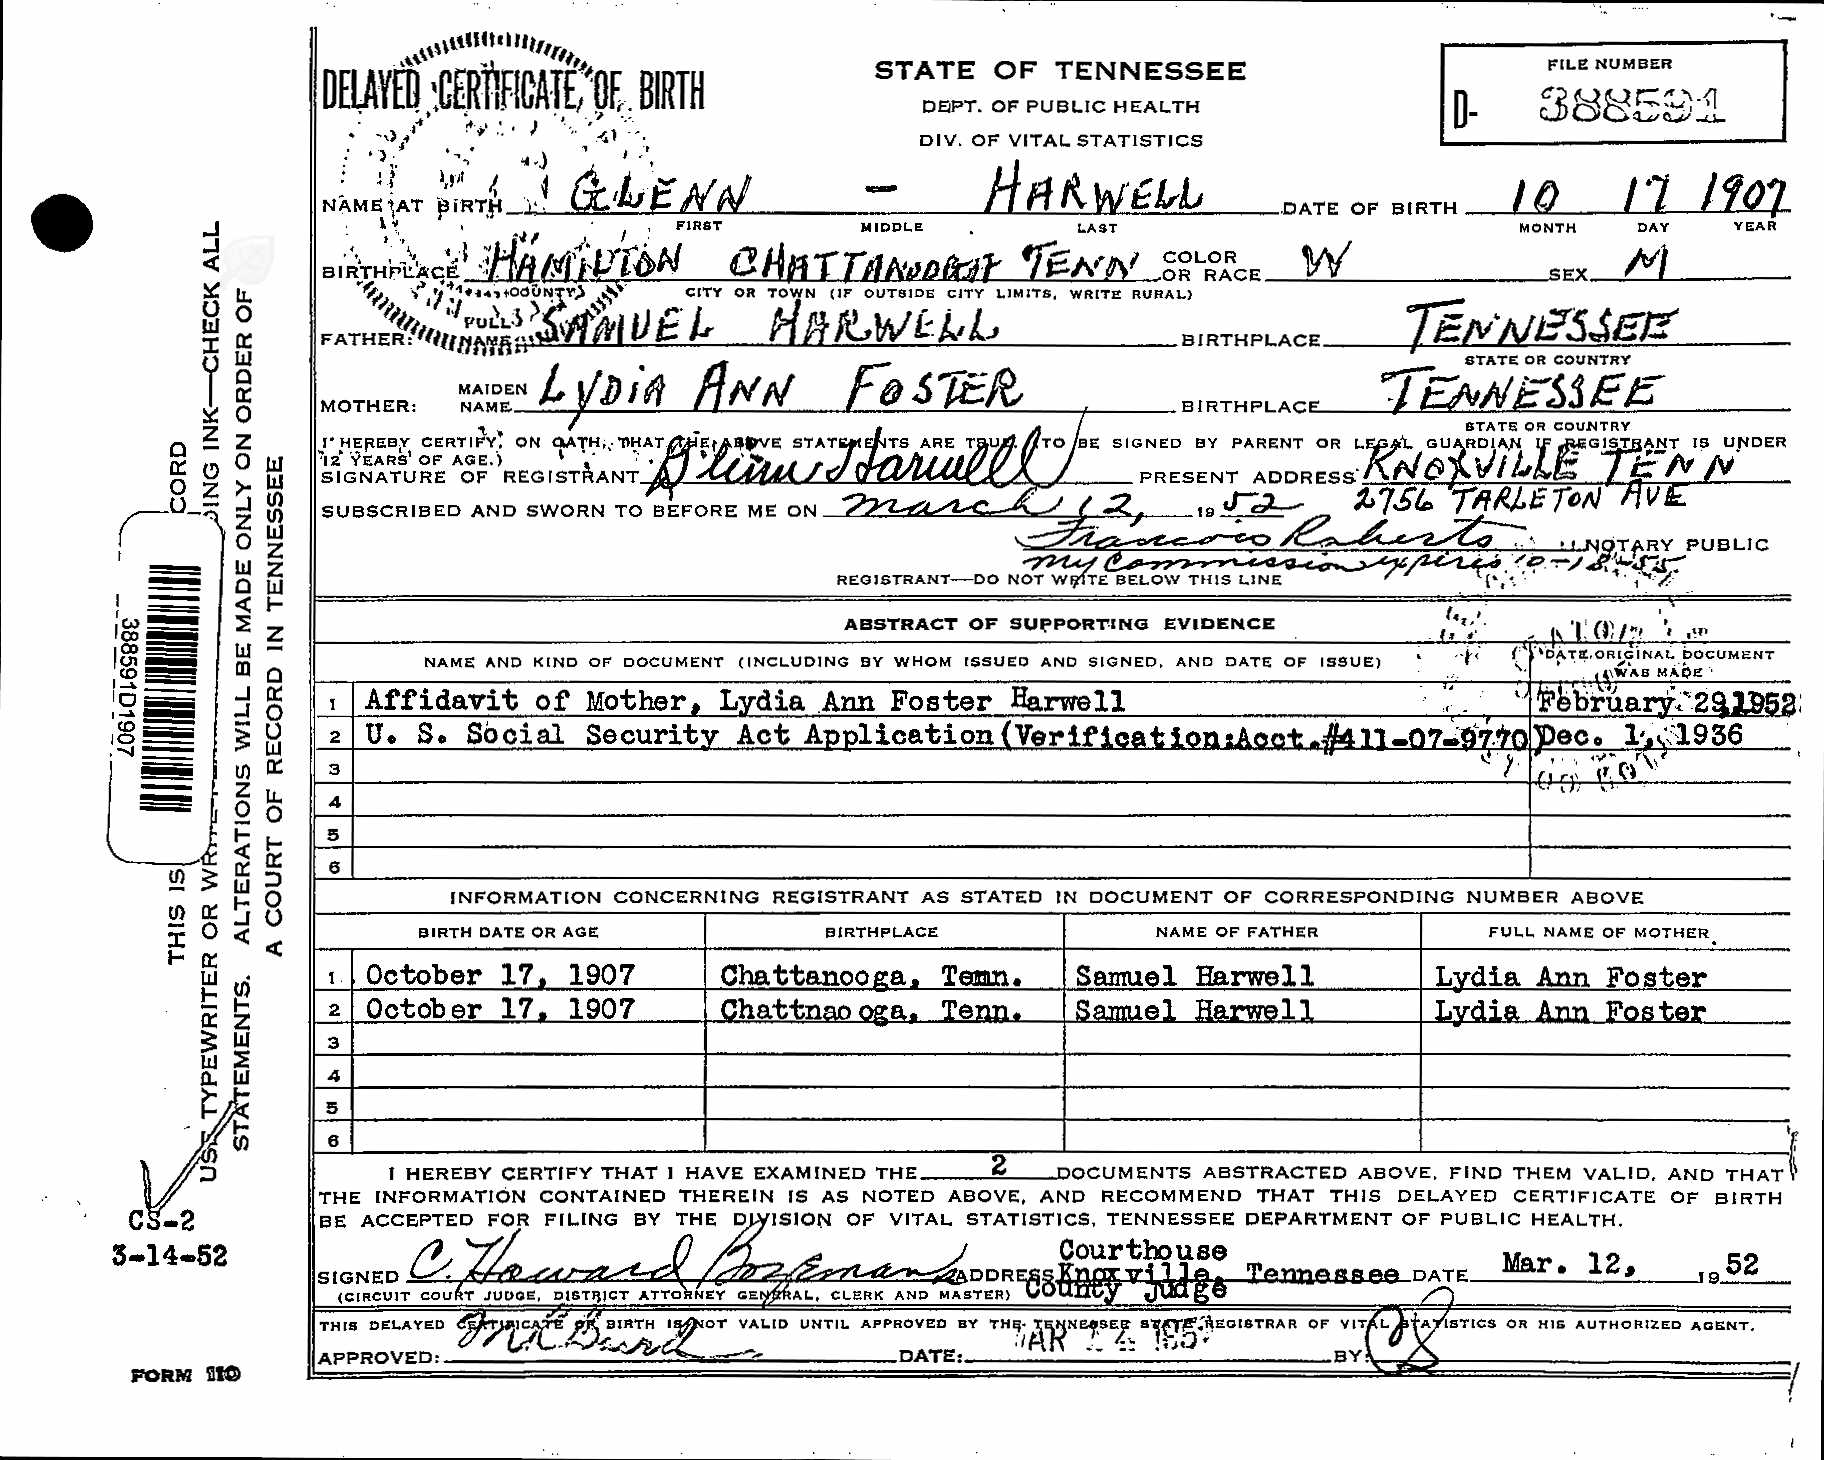 DELAYED CERTIFICATE OF BIRTH
STATE OF TENNESSEE
DEPT. OF PUBLIC HEALTH
DIV. OF VITAL STATISTICS
FILE NUMBER
D- 388591
NAME AT BIRTH GLENN - HARWELL DATE OF BIRTH 10 17 1907
FIRST MIDDLE LAST MONTH DAY YEAR
BIRTHPLACE HAMILTON CHATTANOOGA TENN COLOR OR RACE W SEX M
(COUNTY) CITY OR TOWN (IF OUTSIDE CITY LIMITS, WRITE RURAL)
FATHER: FULL NAME SAMUEL HARWELL BIRTHPLACE TENNESSEE
STATE OR COUNTRY
MOTHER: MAIDEN NAME LYDIA ANN FOSTER BIRTHPLACE TENNESSEE
STATE OR COUNTRY
I HEREBY CERTIFY, ON OATH, THAT THE ABOVE STATEMENTS ARE TRUE. (TO BE SIGNED BY PARENT OR LEGAL GUARDIAN IF REGISTRANT IS UNDER
12 YEARS OF AGE.)
SIGNATURE OF REGISTRANT Glenn Harwell PRESENT ADDRESS KNOXVILLE TENN
SUBSCRIBED AND SWORN TO BEFORE ME ON March 12, 1952 2756 TARLETON AVE
Francois Roberts NOTARY PUBLIC
My Commission expires 10-18-55
REGISTRANT—DO NOT WRITE BELOW THIS LINE
ABSTRACT OF SUPPORTING EVIDENCE
NAME AND KIND OF DOCUMENT (INCLUDING BY WHOM ISSUED AND SIGNED, AND DATE OF ISSUE) DATE ORIGINAL DOCUMENT
WAS MADE
1 Affidavit of Mother, Lydia Ann Foster Harwell February 29,1952
2 U. S. Social Security Act Application(Verification:Acct.#411-07-9770 Dec. 1, 1936
3
4
5
6
INFORMATION CONCERNING REGISTRANT AS STATED IN DOCUMENT OF CORRESPONDING NUMBER ABOVE
BIRTH DATE OR AGE BIRTHPLACE NAME OF FATHER FULL NAME OF MOTHER
1. October 17, 1907 Chattanooga, Tenn. Samuel Harwell Lydia Ann Foster
2 October 17, 1907 Chattnaooga, Tenn. Samuel Harwell Lydia Ann Foster
3
4
5
6
I HEREBY CERTIFY THAT I HAVE EXAMINED THE 2 DOCUMENTS ABSTRACTED ABOVE, FIND THEM VALID, AND THAT
THE INFORMATION CONTAINED THEREIN IS AS NOTED ABOVE, AND RECOMMEND THAT THIS DELAYED CERTIFICATE OF BIRTH
BE ACCEPTED FOR FILING BY THE DIVISION OF VITAL STATISTICS, TENNESSEE DEPARTMENT OF PUBLIC HEALTH.
Courthouse
SIGNED C. Howard Bozeman ADDRESS Knoxville, Tennessee DATE Mar. 12, 1952
(CIRCUIT COURT JUDGE, DISTRICT ATTORNEY GENERAL, CLERK AND MASTER) County Judge
THIS DELAYED CERTIFICATE OF BIRTH IS NOT VALID UNTIL APPROVED BY THE TENNESSEE STATE REGISTRAR OF VITAL STATISTICS OR HIS AUTHORIZED AGENT.
APPROVED: DATE: MAR 14 1952 BY: CS
THIS IS CORD
USE TYPEWRITER OR ING INK—CHECK ALL
STATEMENTS. ALTERATIONS WILL BE MADE ONLY ON ORDER OF
A COURT OF RECORD IN TENNESSEE
388591D1907
CS-2
3-14-52
FORM 110